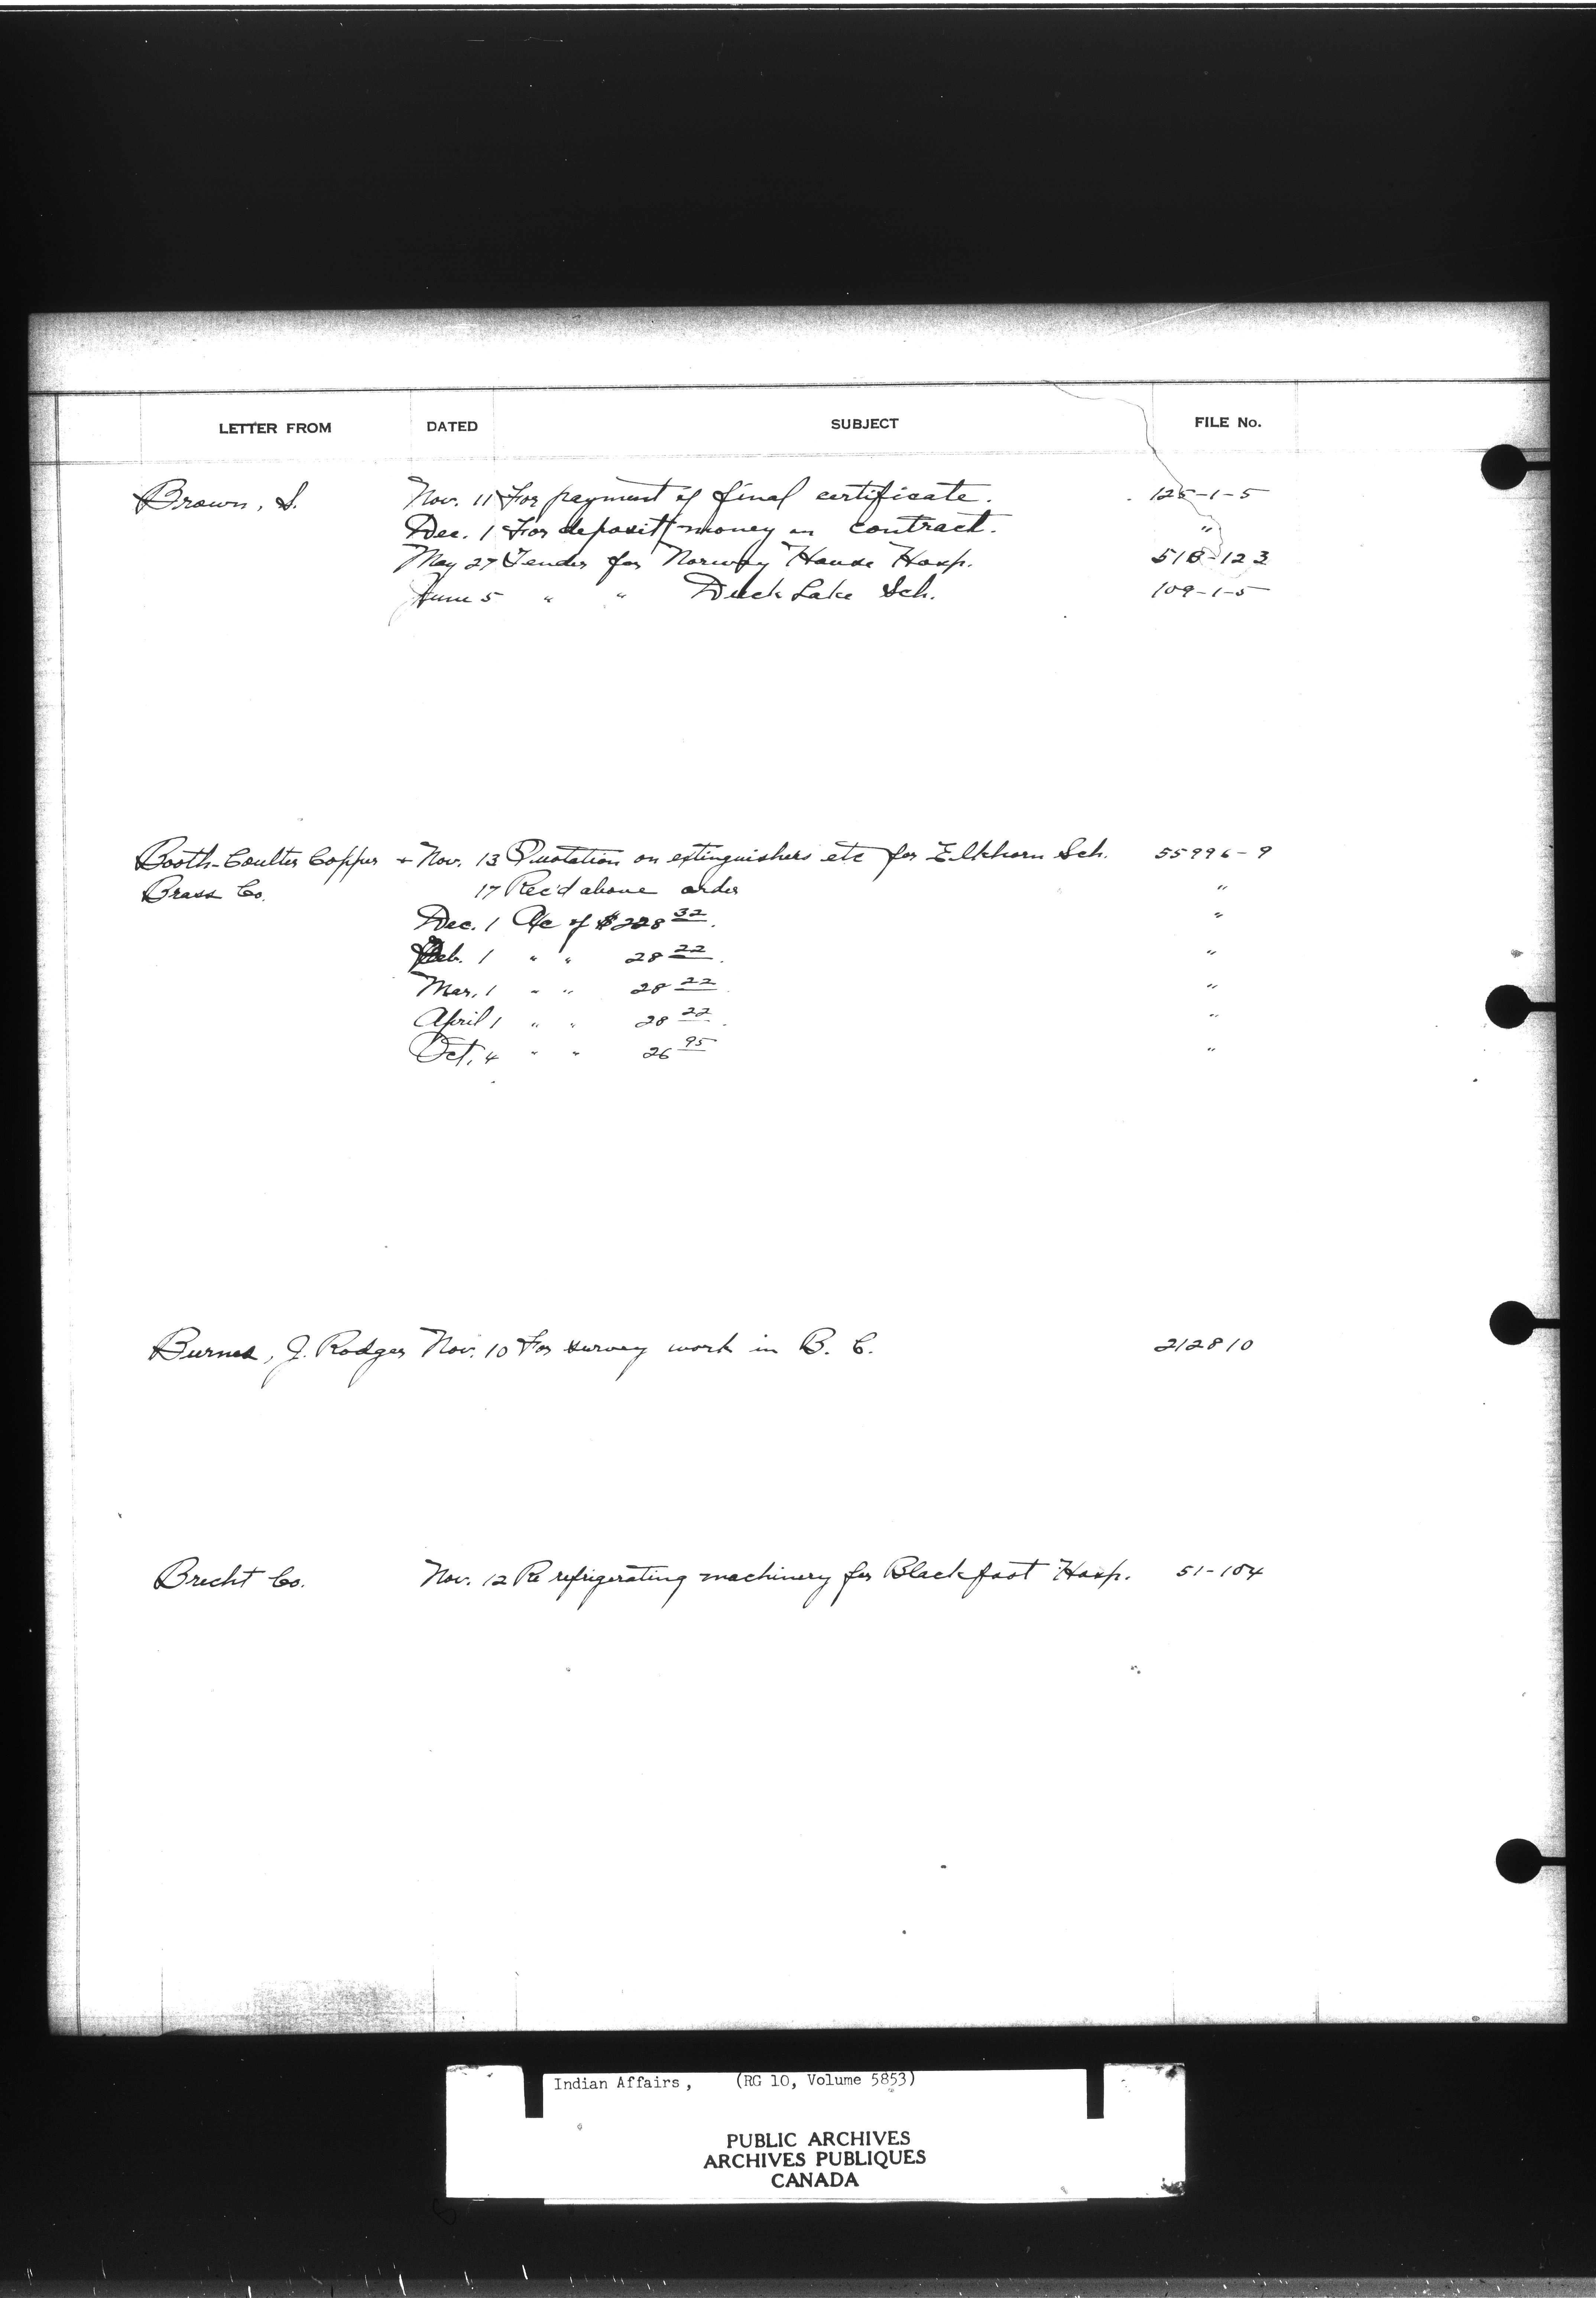 LETTER FROM DATED SUBJECT FILE No.
Brown, S. Nov. 11 For payment of final certificate. 125-1-5
Dec. 1 For deposit money on contract. "
May 27 Tender for Norway House Hosp. 518-123
June 5 " " Duck Lake Sch. 109-1-5
Booth-Coulter Copper + Nov. 13 Quotation on extinguishers etc for Elkhorn Sch. 55996-9
Brass Co. 17 Rec'd above order "
Dec. 1 A/c of $228 32. "
Feb. 1 " " 28 22. "
Mar. 1 " " 28 22 "
April 1 " " 28 22. "
Oct. 4 " " 26 95 "
Burnes, J. Rodger Nov. 10 For survey work in B. C. 212810
Brecht Co. Nov. 12 Re refrigerating machinery for Blackfoot Hosp. 51-104
Indian Affairs, (RG 10, Volume 5853)
PUBLIC ARCHIVES
ARCHIVES PUBLIQUES
CANADA